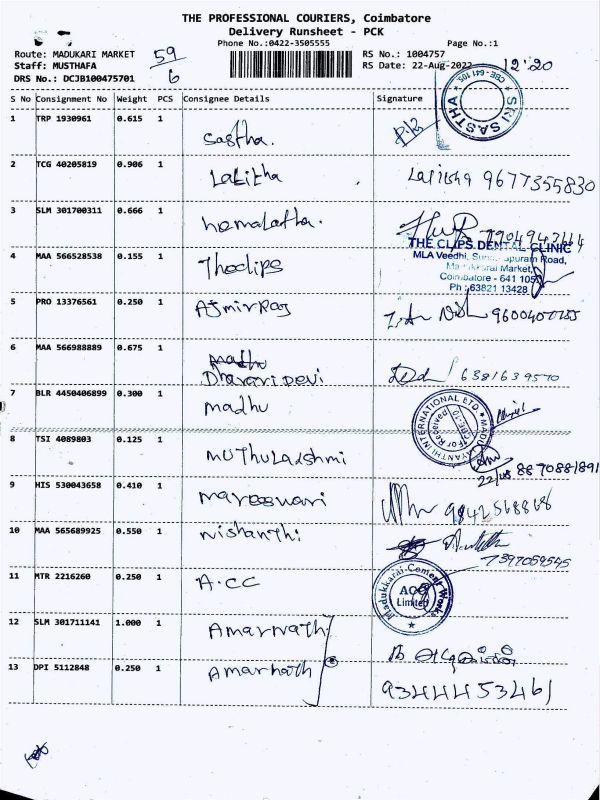 THE PROFESSIONAL COURIERS, Coimbatore
Delivery Runsheet - PCK
Phone No.:0422-3505555 Page No.:1
Route: MADUKARI MARKET 59/6 RS No.: 1004757
Staff: MUSTHAFA RS Date: 22-Aug-2022 12:20
DRS No.: DCJB100475701
S No Consignment No Weight PCS Consignee Details Signature
SRI SASTHA * CBE-641 105. *
1 TRP 1930961 0.615 1 Sastha.
2 TCG 40205819 0.906 1 Lalitha Lalitha 9677355830
3 SLM 301700311 0.666 1 hemalatha.
THE CLIPS DENTAL CLINIC
4 MAA 566528538 0.155 1 Theclips MLA Veedhi, Road,
Market,
Coimbatore - 641 105
Ph : 63821 13428
5 PRO 13376561 0.250 1 AJmirRaj
6 MAA 566988889 0.675 1 madhu
Dharani Devi 6381639570
7 BLR 4450406899 0.300 1 madhu
INTERNATIONAL LTD. * For Received
8 TSI 4089803 0.125 1 MUTHULAXShmi
22/08 8870881891
9 HIS 530043658 0.410 1 mareeswari 9842568868
10 MAA 565689925 0.550 1 nishanthi
7397059545
11 MTR 2216260 0.250 1 A.CC
Madukkarai Cement Works ACC Limited
12 SLM 301711141 1.000 1 Amarnath
13 DPI 5112848 0.250 1 Amarnath
9344453461